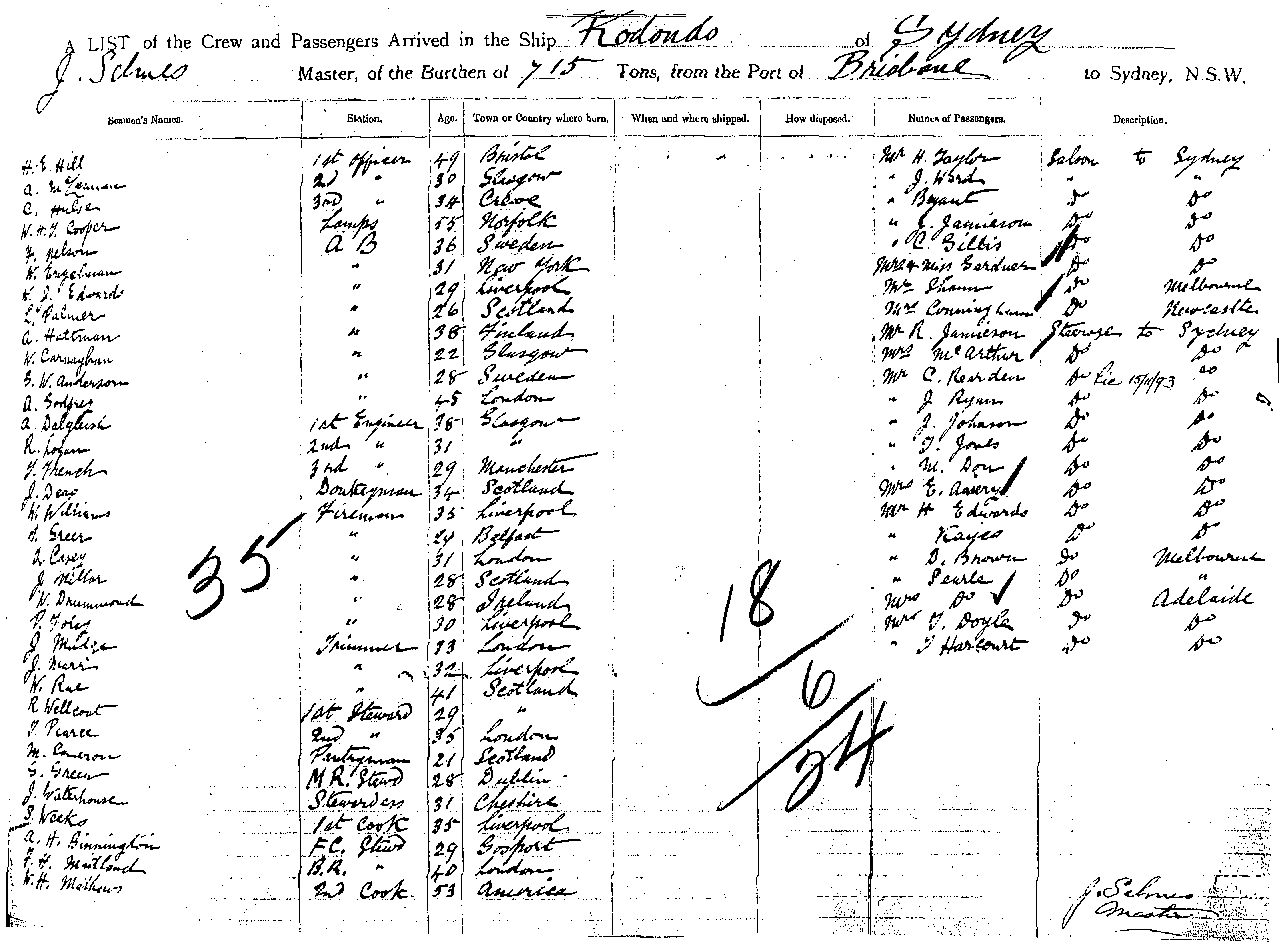 A LIST of the Crew and Passengers Arrived in the Ship Kodondo of Sydney
J. Selmes Master, of the Burthen of 715 Tons, from the Port of Brisbane to Sydney, N.S.W.
Seamen's Names. Station. Age. Town or Country where born. When and where shipped. How disposed. Names of Passengers. Description.
H. E. Hill 1st Officer 49 Bristol " " Mr H. Taylor Saloon to Sydney
A. 2nd " 30 Glasgow " J. Ward " "
C. Hulse 3rd " 34 Crewe " Bryant Do Do
W. H. J. Cooper Lamps 55 Norfolk " Jamieson Do Do
F. Nelson A B 36 Sweden " C. Gillis Do Do
W. Engelman " 31 New York Mrs & Miss Gardner Do Do
W. J. Edwards " 29 Liverpool Mr Shann Do Melbourne
L. Palmer " 26 Scotland Mrs Conningham Do Newcastle
A. Hattman " 38 Finland Mr R. Jamieson Steerage to Sydney
W. Carnaghan " 22 Glasgow Mrs McArthur Do Do
G. W. Anderson " 28 Sweden Mr C. Rearden Do 15/11/93 Do
A. Godfrey " 45 London " J. Ryan Do Do
A. Dalgleish 1st Engineer 38 Glasgow " J. Johnson Do Do
R. Logan 2nd " 31 " " T. Jones Do Do
T. French 3rd " 29 Manchester " M. Don Do Do
J. Deas Donkeyman 34 Scotland Mrs E. Avery Do Do
W. Williams Fireman 35 Liverpool Mr H Edwards Do Do
J. Greer " 24 Belfast " Kayes Do Do
A. Casey " 31 London " D. Brown Do Melbourne
J. Millar " 28 Scotland " Searle Do "
W. Drummond " 28 Ireland Mrs Do Do Adelaide
P. Foley " 30 Liverpool Mr T. Doyle Do Do
J. Mudge Trimmer 33 London " T Harcourt Do Do
J. Marris " 32 Liverpool
W. Rae " 41 Scotland
R Wellcoat 1st Steward 29 "
T. Pearce 2nd " 35 London
M. Cameron Pantryman 21 Scotland
G. Green M R. Stewd 28 Dublin
J. Waterhouse Stewardess 31 Cheshire
S. Weeks 1st Cook 35 Liverpool
A. H. Binnington F.C. Stewd 29 Gosport
F. H. Maitland B.R. " 40 London
W. H. Mathews 2nd Cook 53 America
35
18
6
24
J. Selmes
Master